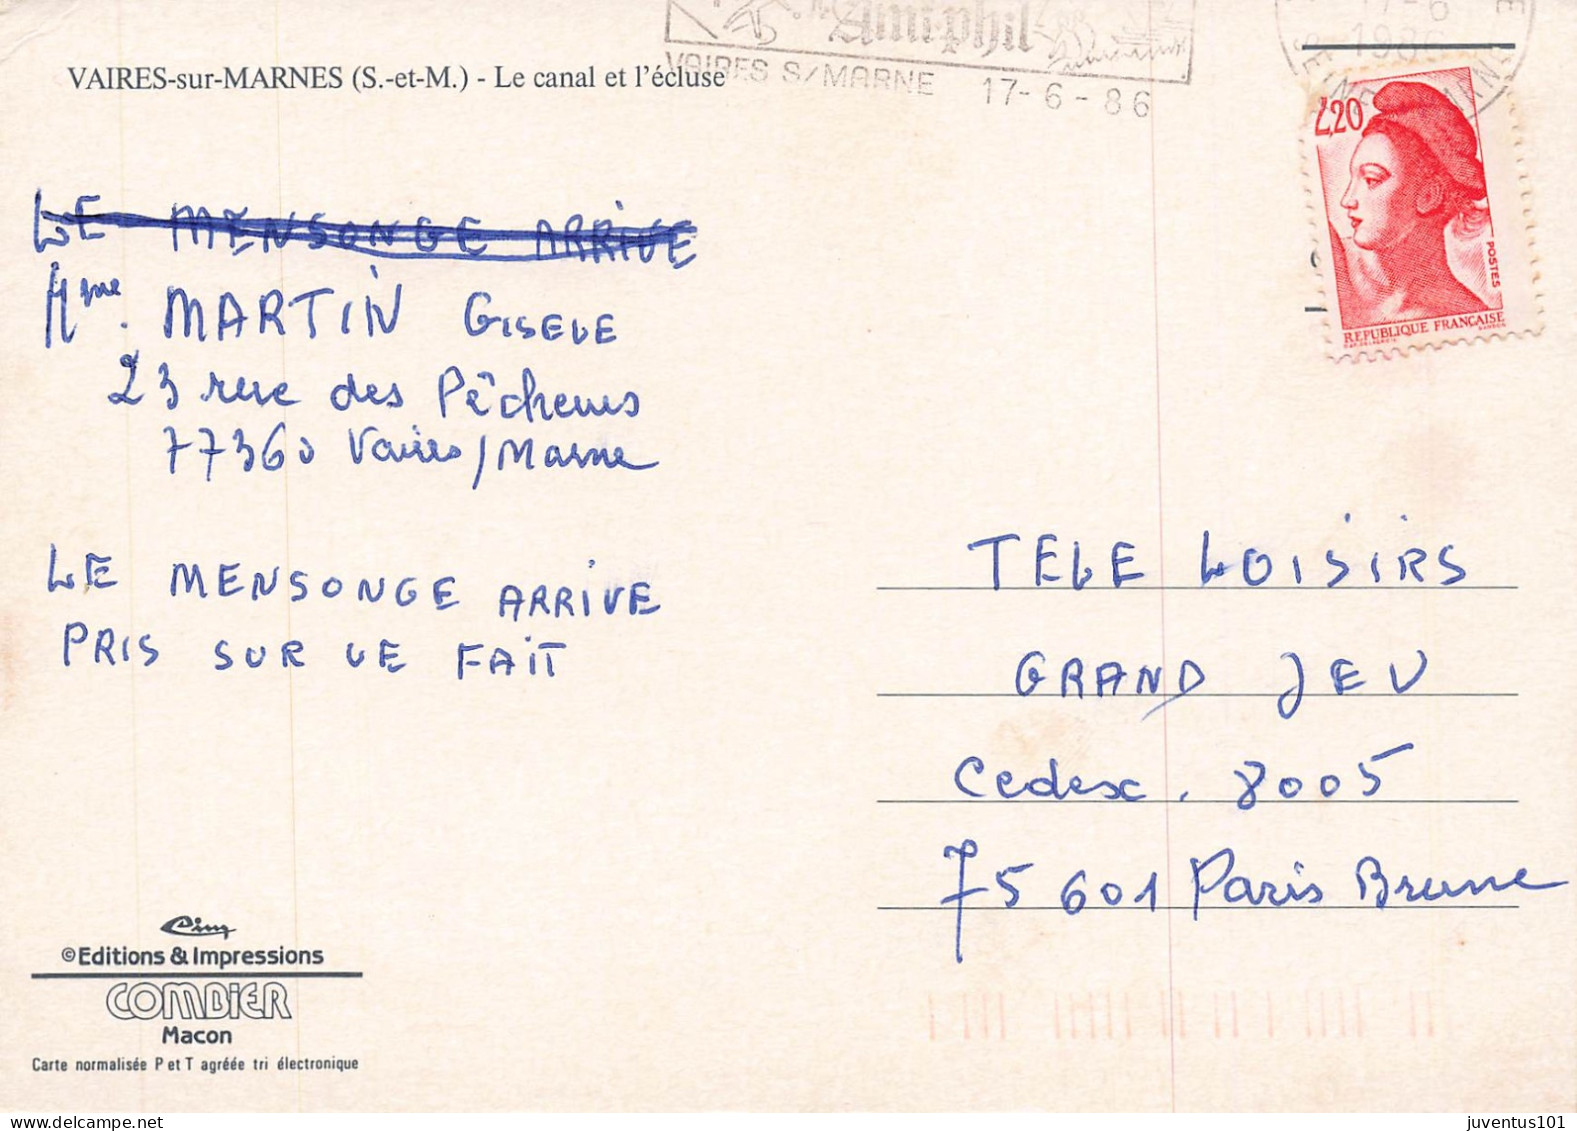 VAIRES-sur-MARNES (S.-et-M.) - Le canal et l'écluse
Amiphil
VAIRES S/MARNE 17-6-86
17-6
1986
2,20
POSTES
REPUBLIQUE FRANÇAISE
LE MENSONGE ARRIVE
Mme. MARTIN GISELE
23 rue des Pêcheurs
77360 Vaires/Marne
LE MENSONGE ARRIVE
PRIS SUR LE FAIT
TELE LOISIRS
GRAND JEU
Cedex. 8005
75601 Paris Brune
Cim
©Editions & Impressions
COMBIER
Macon
Carte normalisée P et T agréée tri électronique
juventus101